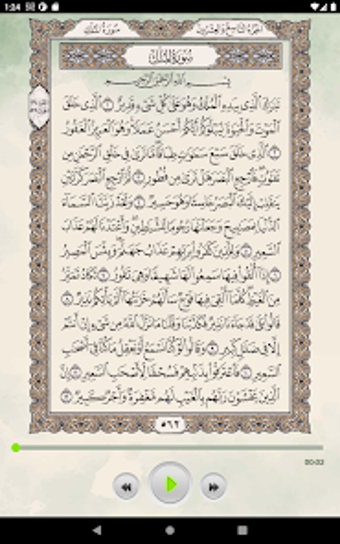 1:24
سُورَةُ المُلْكِ الجُزْءُ التَّاسِعُ وَالعِشْرُونَ
سُورَةُ المُلْكِ
بِسْمِ اللَّهِ الرَّحْمَٰنِ الرَّحِيمِ
تَبَٰرَكَ ٱلَّذِي بِيَدِهِ ٱلْمُلْكُ وَهُوَ عَلَىٰ كُلِّ شَيْءٍ قَدِيرٌ ١ ٱلَّذِي خَلَقَ
ٱلْمَوْتَ وَٱلْحَيَوٰةَ لِيَبْلُوَكُمْ أَيُّكُمْ أَحْسَنُ عَمَلًا وَهُوَ ٱلْعَزِيزُ ٱلْغَفُورُ
٢ ٱلَّذِي خَلَقَ سَبْعَ سَمَٰوَٰتٍ طِبَاقًا مَّا تَرَىٰ فِي خَلْقِ ٱلرَّحْمَٰنِ مِن
تَفَٰوُتٍ فَٱرْجِعِ ٱلْبَصَرَ هَلْ تَرَىٰ مِن فُطُورٍ ٣ ثُمَّ ٱرْجِعِ ٱلْبَصَرَ كَرَّتَيْنِ
يَنقَلِبْ إِلَيْكَ ٱلْبَصَرُ خَاسِئًا وَهُوَ حَسِيرٌ ٤ وَلَقَدْ زَيَّنَّا ٱلسَّمَآءَ
ٱلدُّنْيَا بِمَصَٰبِيحَ وَجَعَلْنَٰهَا رُجُومًا لِّلشَّيَٰطِينِ وَأَعْتَدْنَا لَهُمْ عَذَابَ
ٱلسَّعِيرِ ٥ وَلِلَّذِينَ كَفَرُوا۟ بِرَبِّهِمْ عَذَابُ جَهَنَّمَ وَبِئْسَ ٱلْمَصِيرُ
٦ إِذَآ أُلْقُوا۟ فِيهَا سَمِعُوا۟ لَهَا شَهِيقًا وَهِيَ تَفُورُ ٧ تَكَادُ تَمَيَّزُ
مِنَ ٱلْغَيْظِ كُلَّمَآ أُلْقِيَ فِيهَا فَوْجٌ سَأَلَهُمْ خَزَنَتُهَآ أَلَمْ يَأْتِكُمْ نَذِيرٌ ٨
قَالُوا۟ بَلَىٰ قَدْ جَآءَنَا نَذِيرٌ فَكَذَّبْنَا وَقُلْنَا مَا نَزَّلَ ٱللَّهُ مِن شَيْءٍ إِنْ أَنتُمْ
إِلَّا فِي ضَلَٰلٍ كَبِيرٍ ٩ وَقَالُوا۟ لَوْ كُنَّا نَسْمَعُ أَوْ نَعْقِلُ مَا كُنَّا فِيٓ أَصْحَٰبِ
ٱلسَّعِيرِ ١٠ فَٱعْتَرَفُوا۟ بِذَنۢبِهِمْ فَسُحْقًا لِّأَصْحَٰبِ ٱلسَّعِيرِ ١١ إِنَّ
ٱلَّذِينَ يَخْشَوْنَ رَبَّهُم بِٱلْغَيْبِ لَهُم مَّغْفِرَةٌ وَأَجْرٌ كَبِيرٌ ١٢
٥٦٢